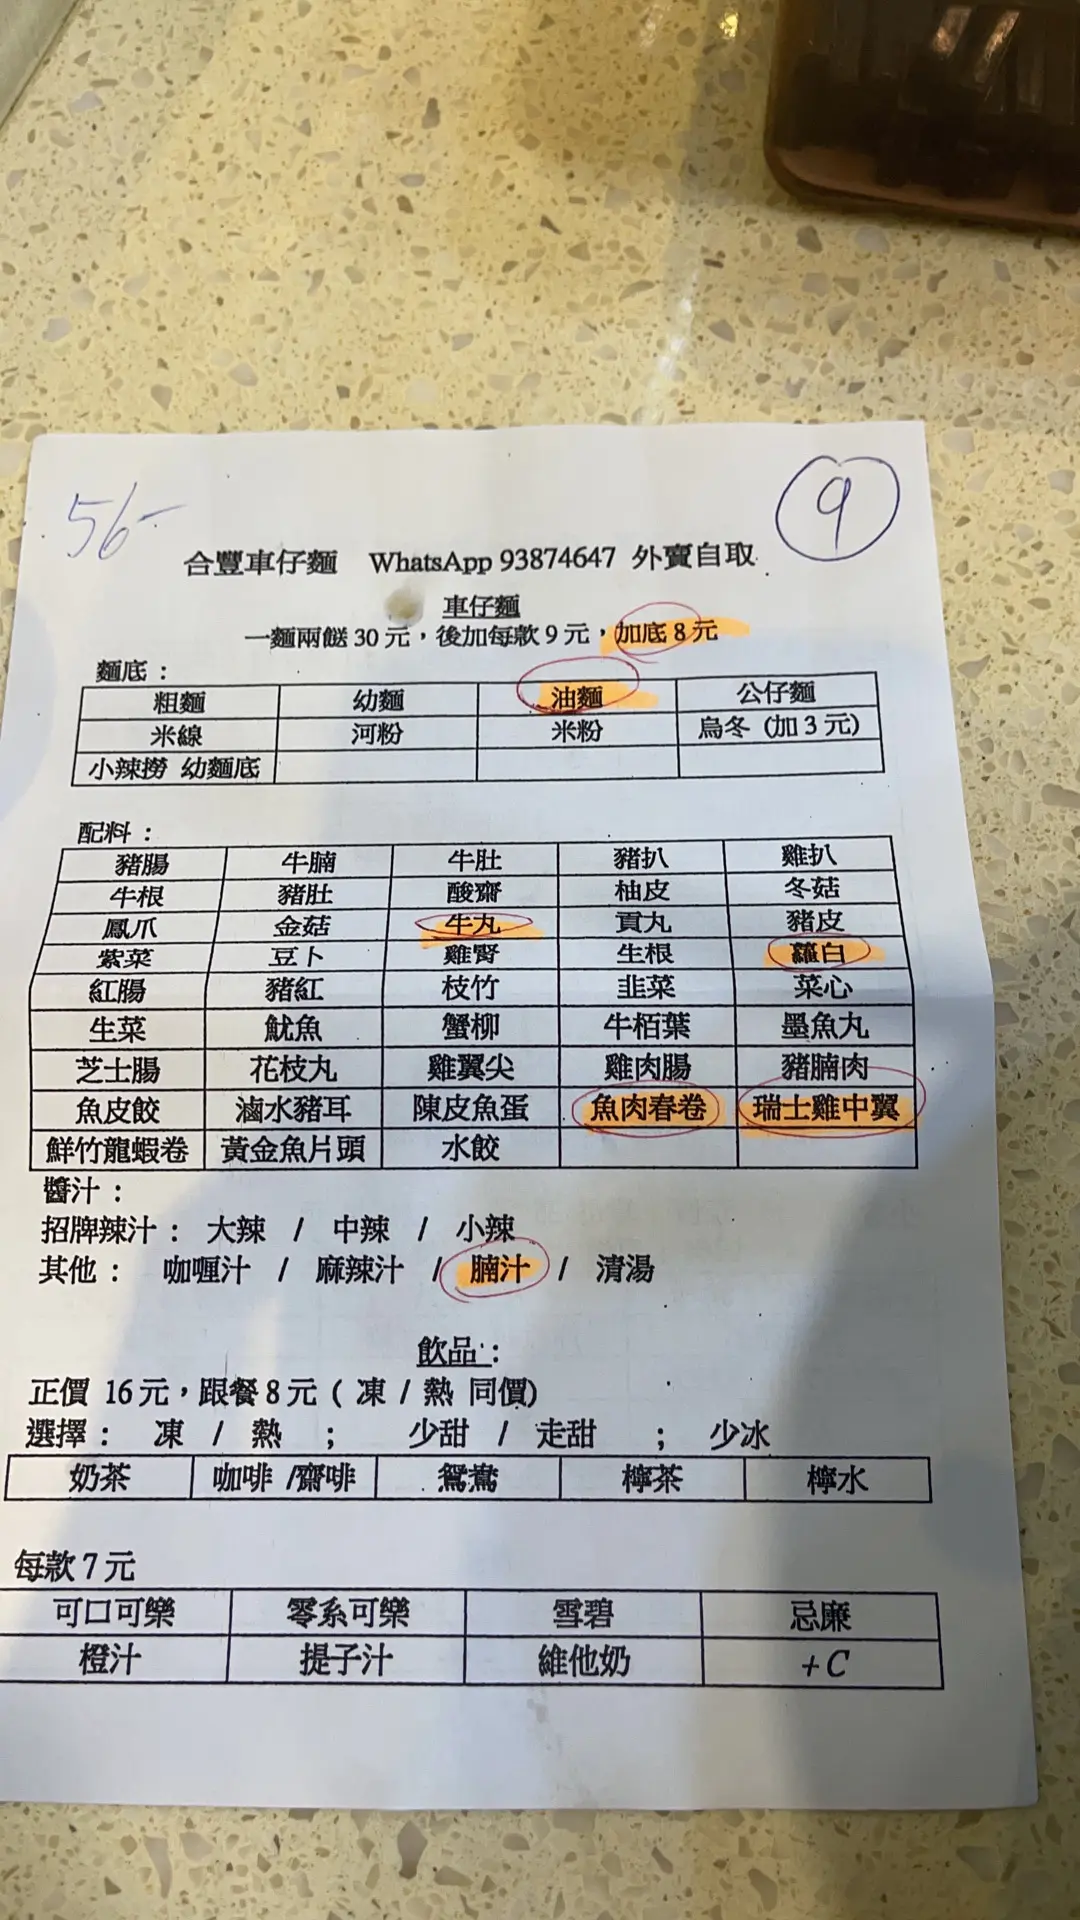 56-
9
合豐車仔麵 WhatsApp 93874647 外賣自取
車仔麵
一麵兩餸 30 元，後加每款 9 元，加底 8 元
麵底：
粗麵 幼麵 油麵 公仔麵
米線 河粉 米粉 烏冬 (加 3 元)
小辣撈 幼麵底
配料：
豬腸 牛腩 牛肚 豬扒 雞扒
牛根 豬肚 酸齋 柚皮 冬菇
鳳爪 金菇 牛丸 貢丸 豬皮
紫菜 豆卜 雞腎 生根 蘿白
紅腸 豬紅 枝竹 韭菜 菜心
生菜 魷魚 蟹柳 牛栢葉 墨魚丸
芝士腸 花枝丸 雞翼尖 雞肉腸 豬腩肉
魚皮餃 滷水豬耳 陳皮魚蛋 魚肉春卷 瑞士雞中翼
鮮竹龍蝦卷 黃金魚片頭 水餃
醬汁：
招牌辣汁： 大辣 / 中辣 / 小辣
其他： 咖喱汁 / 麻辣汁 / 腩汁 / 清湯
飲品：
正價 16 元，跟餐 8 元 ( 凍 / 熱 同價)
選擇： 凍 / 熱 ； 少甜 / 走甜 ； 少冰
奶茶 咖啡 /齋啡 鴛鴦 檸茶 檸水
每款 7 元
可口可樂 零系可樂 雪碧 忌廉
橙汁 提子汁 維他奶 +C